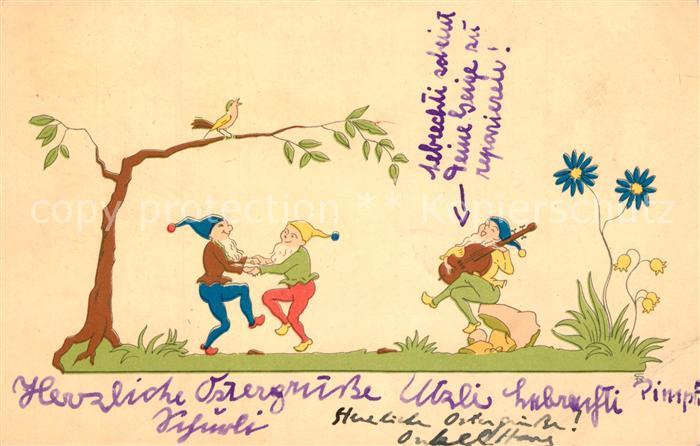 Lebrechti scheint
Deine Geige zu
reparieren!
copy protection ** Kopierschutz
Herzliche Ostergrüße Utzli Lebrechti Pimpf
Schurli
Herzliche Ostergrüße!
Onkel Hans